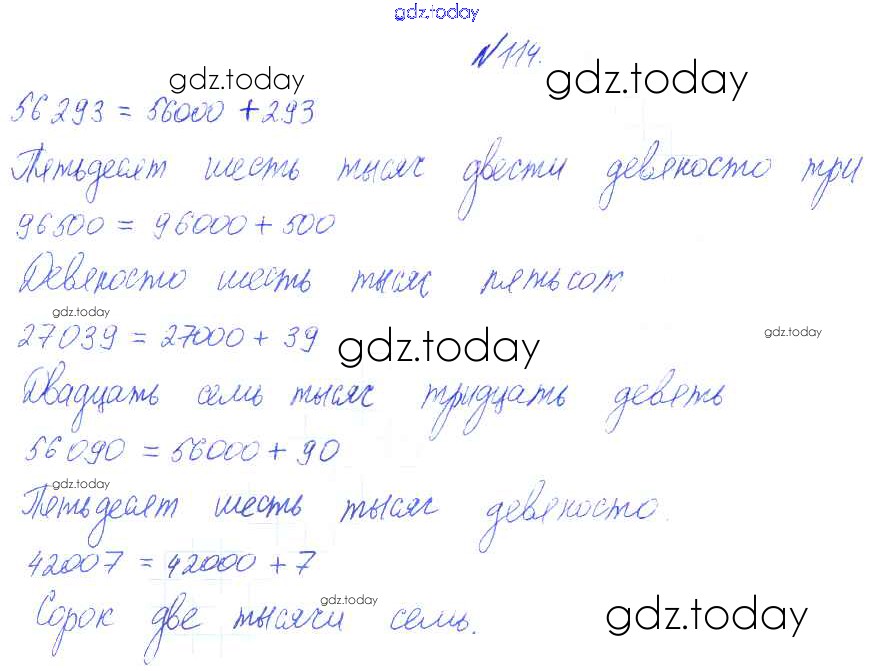 gdz.today
№114.
gdz.today
gdz.today
56 293 = 56000 + 293
Пятьдесят шесть тысяч двести девяносто три
96500 = 96000 + 500
Девяносто шесть тысяч пятьсот
gdz.today
27039 = 27000 + 39
gdz.today
gdz.today
Двадцать семь тысяч тридцать девять
56 090 = 56000 + 90
gdz.today
Пятьдесят шесть тысяч девяносто.
42007 = 42000 + 7
Сорок две тысячи семь.
gdz.today
gdz.today